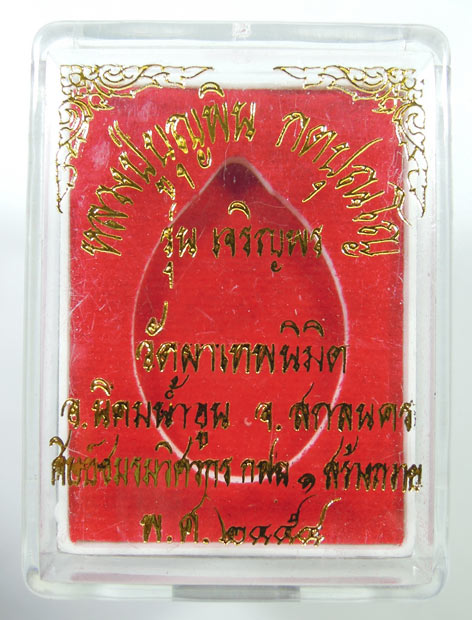 หลวงปู่บุญพิน กตปุณโญ
รุ่น เจริญพร
วัดผาเทพนิมิต
อ.นิคมน้ำอูน จ.สกลนคร
ศิษย์ชมรมวิศวกร กฝผ ๑ สร้างถวาย
พ.ศ.๒๕๕๔